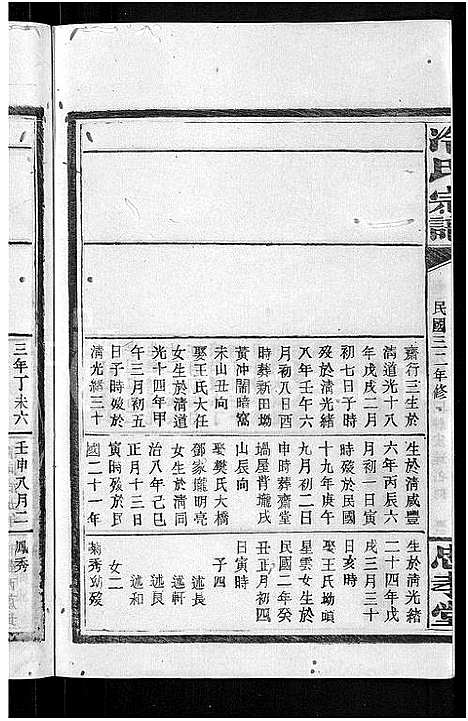 冷氏宗譜
民國三二年修
忠孝堂
齋行三生於
清道光十八
年戊戌二月
初七日子時
歿於清光緒
八年壬午六
月初八日酉
時葬新田坳
黃沖闇暗窩
未山丑向
娶王氏大任
女生於清道
光十四年甲
午三月初五
日子時歿於
清光緒三十
生於清咸豐
六年丙辰六
月初一日寅
時歿於民國
十九年庚午
九月初二日
申時葬齋堂
塆屋背壠戌
山辰向
娶樊氏大橋
鄧家壠明亮
女生於清同
治八年己巳
正月十三日
寅時歿於民
國二十一年
生於清光緒
二十四年戊
戌三月三十
日亥時
娶王氏坳頭
星雲女生於
民國二年癸
丑正月初四
日寅時
子四
述長
述軒
述良
述和
女二
菊秀幼殁
三年丁未六
壬申八月二
鳳秀